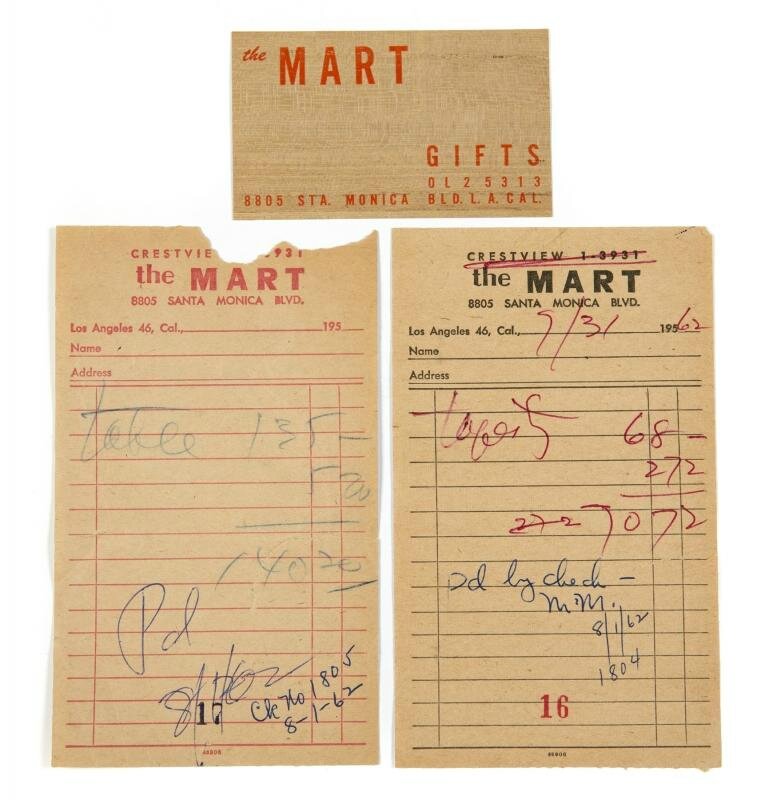 the MART
GIFTS
OL25313
8805 STA. MONICA BLD. L.A. CAL.
CRESTVIE 931
the MART
8805 SANTA MONICA BLVD.
Los Angeles 46, Cal., 195
Name
Address
Table 135 -
5 20
140 20
Pd
17 Ck No 1805
8-1-62
46906
CRESTVIEW 1-3931
the MART
8805 SANTA MONICA BLVD.
Los Angeles 46, Cal., 7/31 195 62
Name
Address
68 -
2 72
272 70 72
Pd by check -
M.M.
8/1/62
1804
16